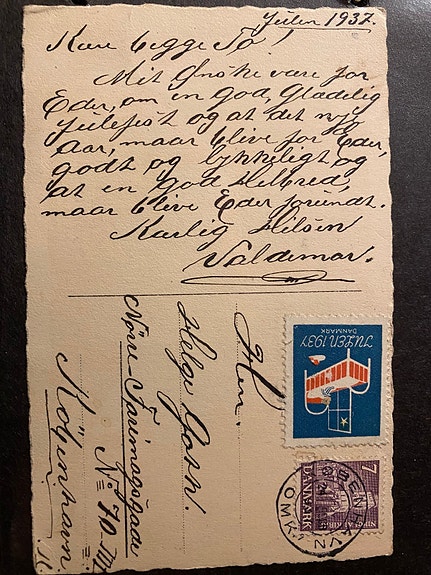 Julen 1937.
Kære begge To!
Mit Ønske være for
Eder, om en god Glædelig
Julefest og at det nye
Aar, maa blive for Eder,
godt og lykkeligt og
at en god Helbred,
maa blive Eder forundt.
Kærlig Hilsen
Valdemar.
Hr.
Helge Goth.
Nørre-Farimagsgade
No 70 III
København
K.
JULEN 1937
DANMARK
7
NIKOLAJ KIRKE
DANMARK
KØBENHAVN
OMK.